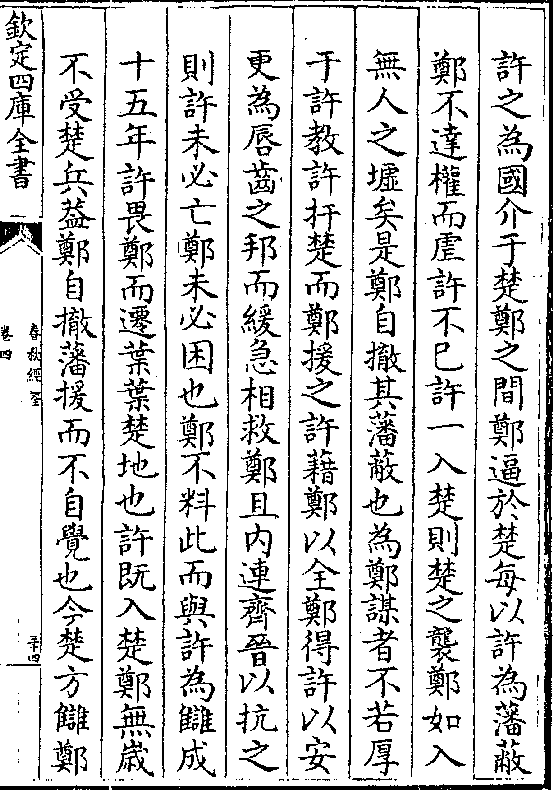 許之為國介于楚鄭之間鄭逼於楚每以許為藩蔽
鄭不達權而虐許不已許一入楚則楚之襲鄭如入
無人之墟矣是鄭自撤其藩蔽也為鄭謀者不若厚
于許教許扞楚而鄭援之許藉鄭以全鄭得許以安
更為唇齒之邦而緩急相救鄭且内連齊晉以抗之
則許未必亡鄭未必困也鄭不料此而與許為讎成
十五年許畏鄭而遷葉葉楚地也許既入楚鄭無歲
不受楚兵葢鄭自撤藩援而不自覺也今楚方讎鄭
欽定四庫全書
春秋經筌
卷四